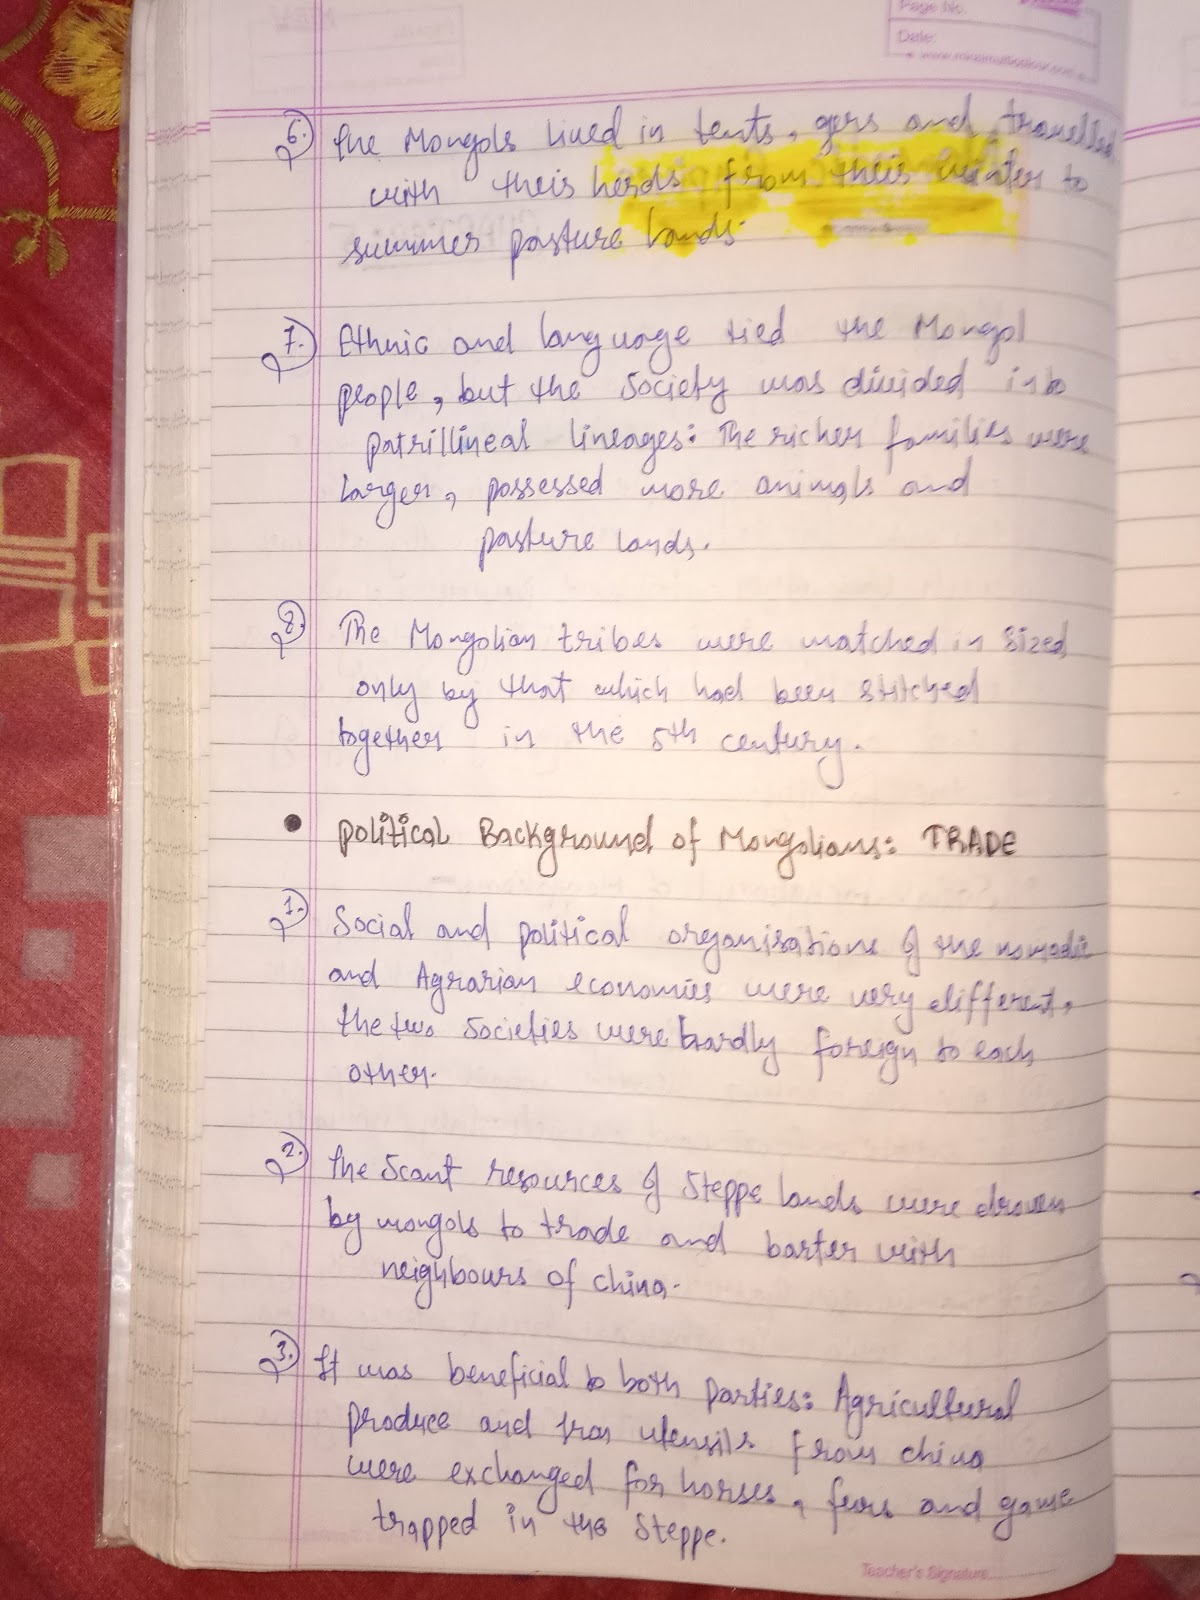 Page No.
Date:
6. The Mongols lived in tents, gers and travelled
with their herds from their winter to
summer pasture lands.
7. Ethnic and language tied the Mongol
people, but the society was divided into
patrillineal lineages: The richer families were
larger, possessed more animals and
pasture lands.
8. The Mongolian tribes were matched in sized
only by that which had been stitched
together in the 5th century.
• Political Background of Mongolians: TRADE
1. Social and political organisations of the nomadic
and Agrarian economies were very different,
the two societies were hardly foreign to each
other.
2. The Scant resources of Steppe lands were drawen
by mongols to trade and barter with
neighbours of china.
3. It was beneficial to both parties: Agricultural
produce and Iron utensils from china
were exchanged for horses, furs and game
trapped in the Steppe.
Teacher's Signature